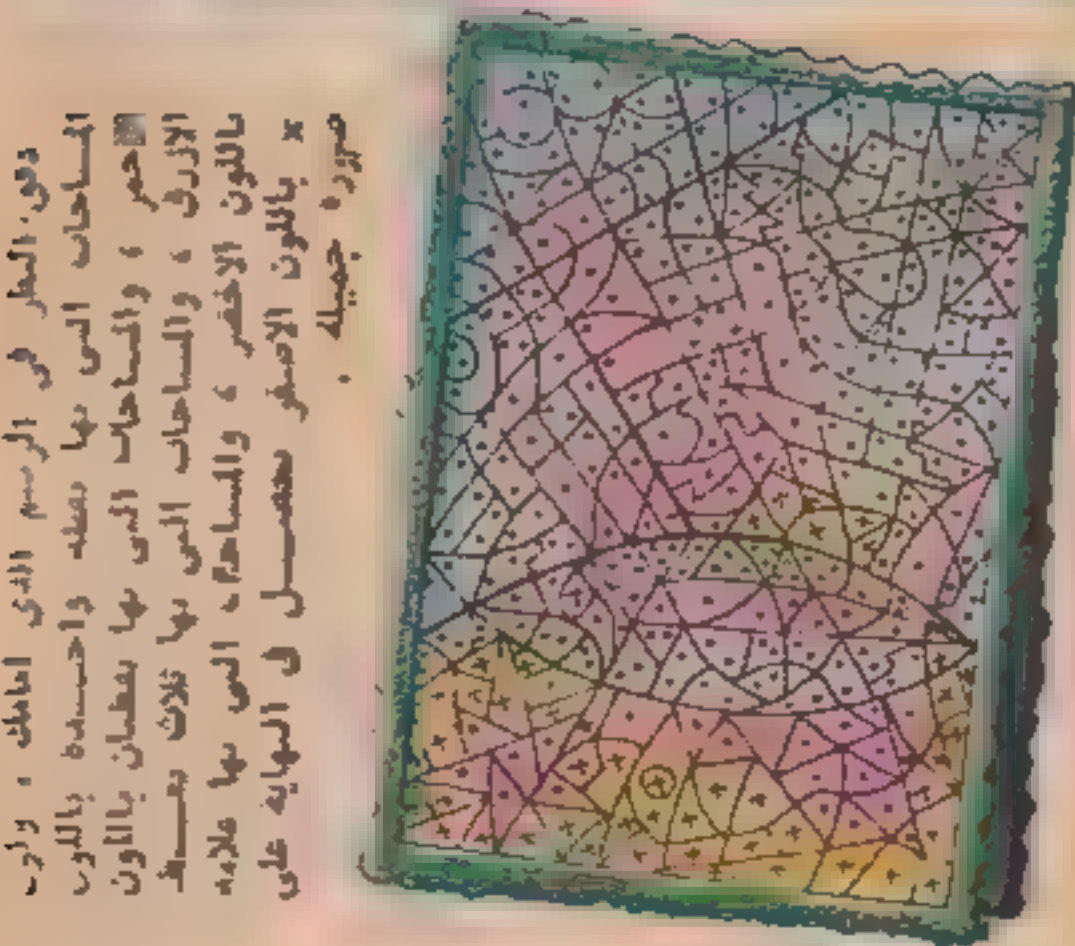 دقق النظر فى الرسم الذى امامك ، ولون
المساحات التى بها نقطه واحـــدة باللون
، والمساحات التى بها نقطتان باللون
الازرق ، والمساحات التى بها ثلاث نقـــط
باللون الاخضر ، والمساحات التى بها علامة
× باللون الاصفر تحصـــل فى النهاية على
صورة جميله .